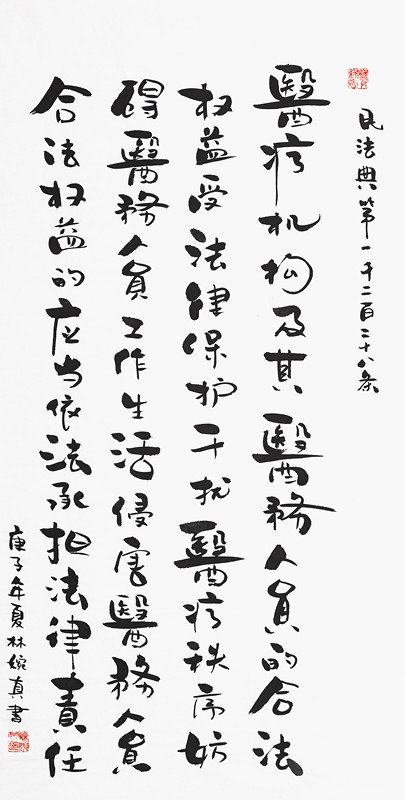 民法典第一千二百二十八条
醫疗机构及其醫務人員的合法
权益受法律保护干扰醫疗秩序妨
碍醫務人員工作生活侵害醫務人員
合法权益的应当依法承担法律責任
庚子年夏林婉真書